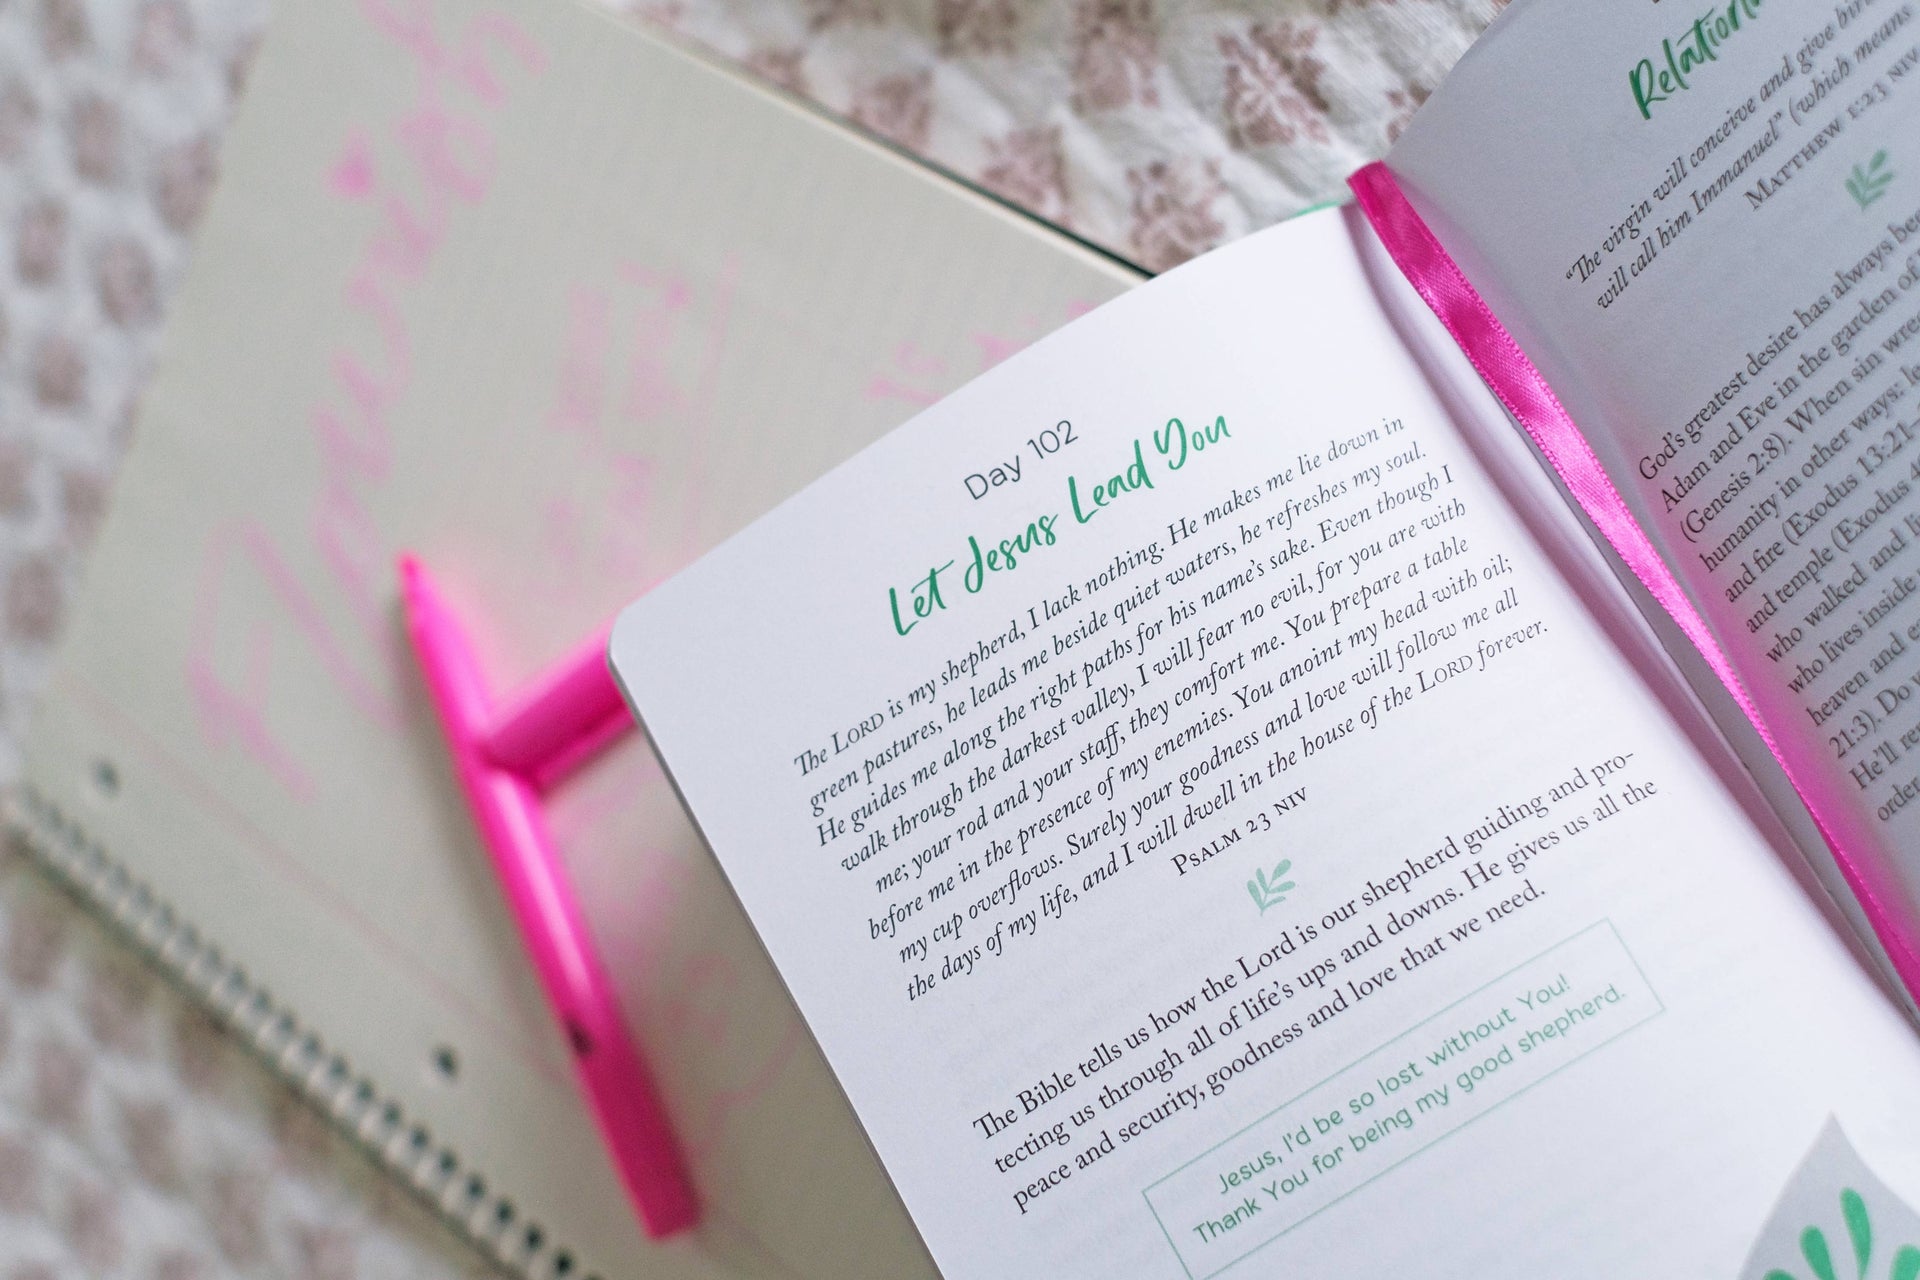 Day 102
Let Jesus Lead You
The LORD is my shepherd, I lack nothing. He makes me lie down in
green pastures, he leads me beside quiet waters, he refreshes my soul.
He guides me along the right paths for his name's sake. Even though I
walk through the darkest valley, I will fear no evil, for you are with
me; your rod and your staff, they comfort me. You prepare a table
before me in the presence of my enemies. You anoint my head with oil;
my cup overflows. Surely your goodness and love will follow me all
the days of my life, and I will dwell in the house of the LORD forever.
PSALM 23 NIV
The Bible tells us how the Lord is our shepherd guiding and pro-
tecting us through all of life's ups and downs. He gives us all the
peace and security, goodness and love that we need.
Jesus, I'd be so lost without You!
Thank You for being my good shepherd.
"The virgin will conceive and give
will call him Immanuel" (which means
MATTHEW 1:23 NIV
God's greatest desire has always
Adam and Eve in the garden of
(Genesis 2:8). When sin
humanity in other ways:
and fire (Exodus 13:21–
and temple (Exodus
who walked and
who lives inside
heaven and
21:3). Do
He'll
order
Flourish